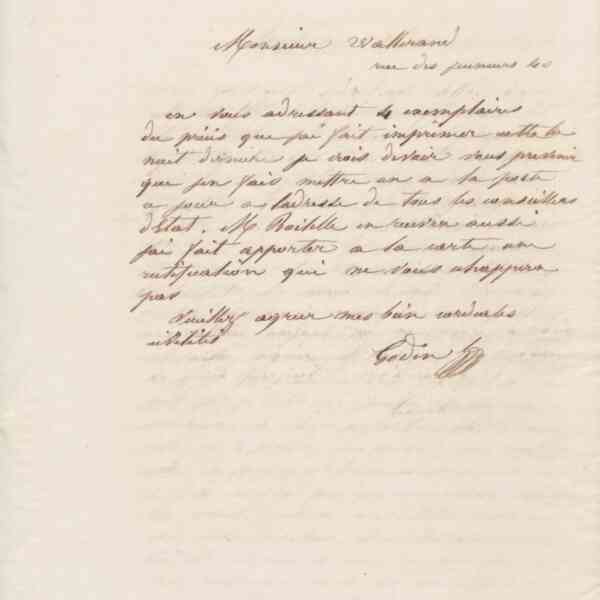 Monsieur Wallerand
rue des jeuneurs 40
en vous adressant 4 exemplaires
du précis que j'ai fait imprimer cette la
nuit dernière je crois devoir vous prevenir
que j'en fais mettre un a la poste
a jour a l'adresse de tous les conseillers
d'Etat. M. Boitelle en recevra aussi
j'ai fait apporter a la carte une
rectification qui ne vous echappera
pas
Veuillez agreer mes bien cordiales
civilités
Godin